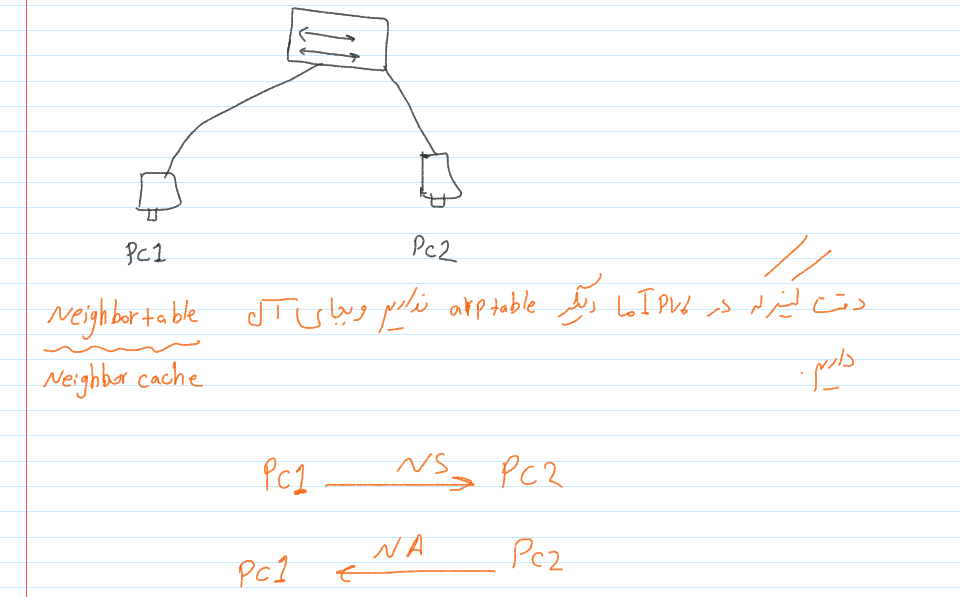 PC1
PC2
دقت کنید که در IPv6 ما دیگر arp table نداریم و بجای آن Neighbor table
Neighbor cache
داریم.
PC1 NS PC2
PC1 NA PC2